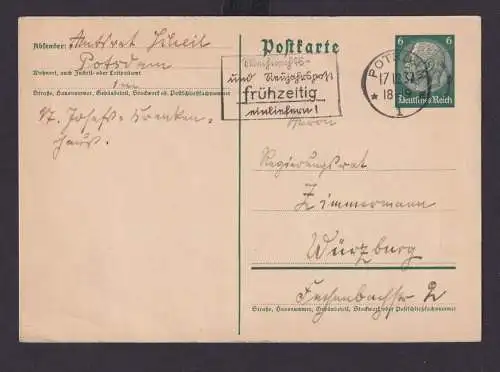 Absender: Amtsrat Scheil
Potsdam
Wohnort, auch Zustell- oder Leitpostamt
Straße, Hausnummer, Gebäudeteil, Stockwerk od. Postschließfachnummer
St. Josefs-Kranken-
haus.
Postkarte
Weihnachts-
und Neujahrspost
frühzeitig
einliefern!
6 6
Deutsches Reich
POTSDAM
17.12.37
18-19
* 1
Herrn
Regierungsrat
Zimmermann
Würzburg
2
Straße, Hausnummer, Gebäudeteil, Stockwerk oder Postschließfachnummer